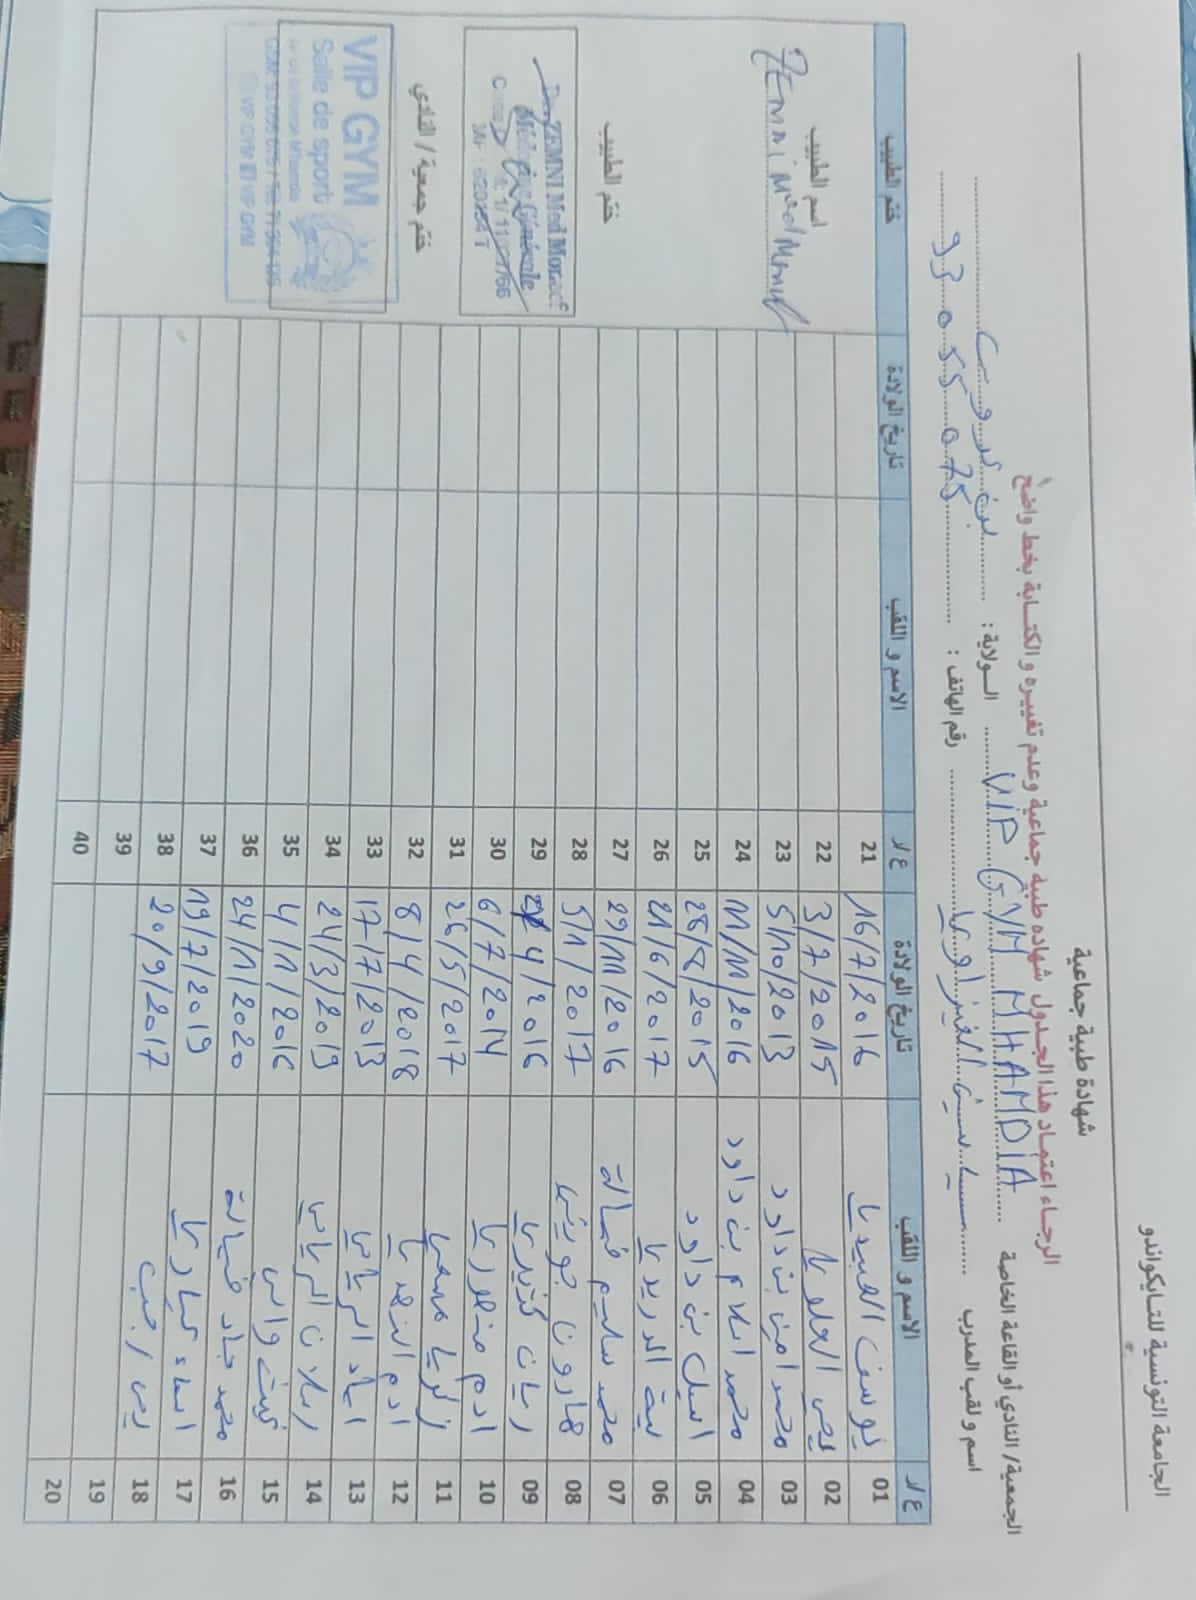 الجامعة التونسية للتايكواندو
شهادة طبية جماعية
الرجاء اعتماد هذا الجدول شهادة طبية جماعية وعدم تغييره و الكتابة بخط واضح
الجمعية/ النادي أو القاعة الخاصة VIP GYM MHAMDIA الولاية : بن عروس
اسم و لقب المدرب رقم الهاتف : 93 055 075
ع/ر الاسم و اللقب تاريخ الولادة ع/ر الاسم و اللقب تاريخ الولادة ختم الطبيب
01 يوسف العبيدي 16/7/2016 21
02 يحي العلوي 3/7/2015 22
03 محمد امين بن داود 5/10/2013 23
04 محمد اسلام بن داود 11/11/2016 24
05 اسيل بن داود 28/8/2015 25
06 بية الدريدي 21/6/2017 26
07 محمد سليم ضيالة 29/11/2016 27
08 هارون جويني 5/1/2017 28
09 ريان 4/2016 29
10 ادم منصوري 6/7/2014 30
11 زكريا 26/5/2017 31
12 ادم النهدي 8/4/2018 32
13 اياد الرياحي 17/7/2013 33
14 ارسلان الرياحي 24/3/2019 34
15 غيث 4/1/2016 35
16 محمد جاد ضيالة 24/11/2020 36
17 اسماء 19/7/2019 37
18 رجب 20/9/2017 38
19 39
20 40
اسم الطبيب
ZEMNI Med
ختم الطبيب
ZEMNI Med
Médecine Générale
ختم جمعية / النادي
VIP GYM
Salle de sport
VIP GYM VIP GYM